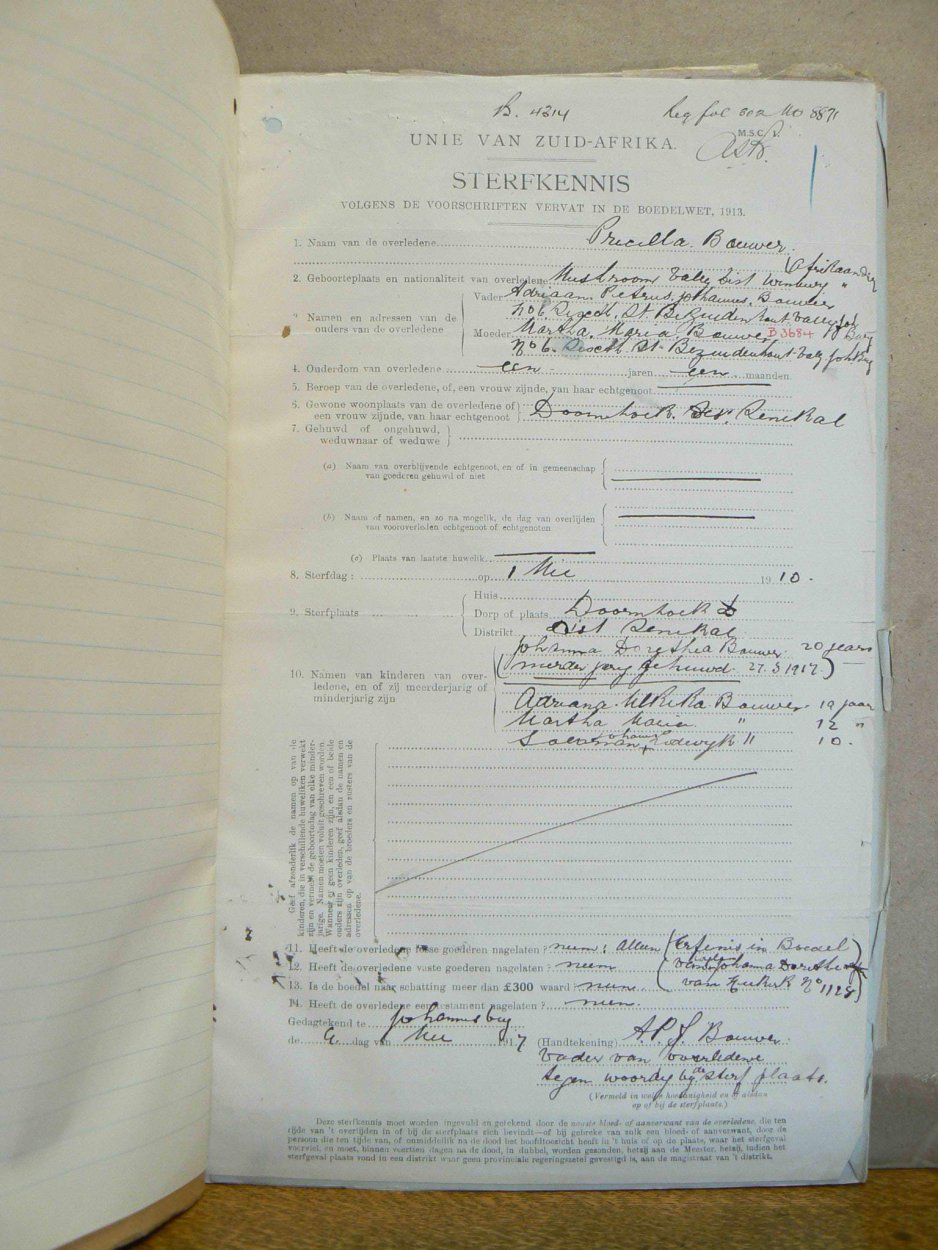 B. 4314 Reg fol 302 No 8871
M.S.C.
UNIE VAN ZUID-AFRIKA.
STERFKENNIS
VOLGENS DE VOORSCHRIFTEN VERVAT IN DE BOEDELWET, 1913.
1. Naam van de overledene Precilla Bouwer
Afrikaander
2. Geboorteplaats en nationaliteit van overledene Mushroom Valley Dist Winburg "
3. Namen en adressen van de ouders van de overledene
Vader Adriaan Pietrus Johannes Bouwer
No 6. St. Bezuidenhout Valley Joh Burg
Moeder Martha Maria Bouwer B3684
No 6. St. Bezuidenhout Valy Joh Burg
4. Ouderdom van overledene een jaren een maanden
5. Beroep van de overledene, of, een vrouw zijnde, van haar echtgenoot
6. Gewone woonplaats van de overledene of een vrouw zijnde, van haar echtgenoot Doornhoek Senekal
7. Gehuwd of ongehuwd, weduwnaar of weduwe
(a) Naam van overblijvende echtgenoot, en of in gemeenschap
van goederen gehuwd of niet
(b) Naam of namen, en zo na mogelik, de dag van overlijden
van vooroverleden echtgenoot of echtgenoten
(c) Plaats van laatste huwelik
8. Sterfdag: op 1 Mei 1910.
9. Sterfplaats
Huis
Dorp of plaats Doornhoek
Distrikt Dist Senekal
10. Namen van kinderen van overledene, en of zij meerderjarig of minderjarig zijn
Johanna Dorethea Bouwer 20 years
(minder jarig gehuwd 27.3.1917.)
Adriana Bouwer 19 jaar
Martha Maria " 12 "
Salomon Johannes Lodewyk " 10.
Geef afzonderlik de namen op van de
kinderen, die in verschillende huweliken verwekt
zijn en vermeld de geboortedag van elke minder-
jarige. Namen moeten voluit geschreven worden.
Wanneer er geen kinderen zijn, en een of beide
ouders zijn overleden, geef alsdan de namen en
adressen op van de broeders en zusters van de
overledene.
11. Heeft de overledene losse goederen nagelaten? neen: alleen (Erfenis in Boedel
12. Heeft de overledene vaste goederen nagelaten? neen (van Johanna Dorethea
13. Is de boedel naar schatting meer dan £300 waard? neen van No 1128)
14. Heeft de overledene een testament nagelaten? neen.
Gedagtekend te Johannesburg
de 9 dag van Mei 1917 (Handtekening) A P J Bouwer
Vader van overledene
tegen woordig by de sterf plaats.
(Vermeld in welke hoedanigheid en of alsdan
op of bij de sterfplaats.)
Deze sterfkennis moet worden ingevuld en getekend door de naaste bloed- of aanverwant van de overledene, die ten
tijde van 't overlijden in of bij de sterfplaats zich bevindt—of bij gebreke van zulk een bloed- of aanverwant, door de
persoon die ten tijde van, of onmiddellik na de dood het hoofdtoezicht heeft in 't huis of op de plaats, waar het sterfgeval
voorviel, en moet, binnen veertien dagen na de dood, in dubbel, worden gezonden, hetzij aan de Meester, hetzij, indien het
sterfgeval plaats vond in een distrikt waar geen provinciale regeringszetel gevestigd is, aan de magistraat van 't distrikt.